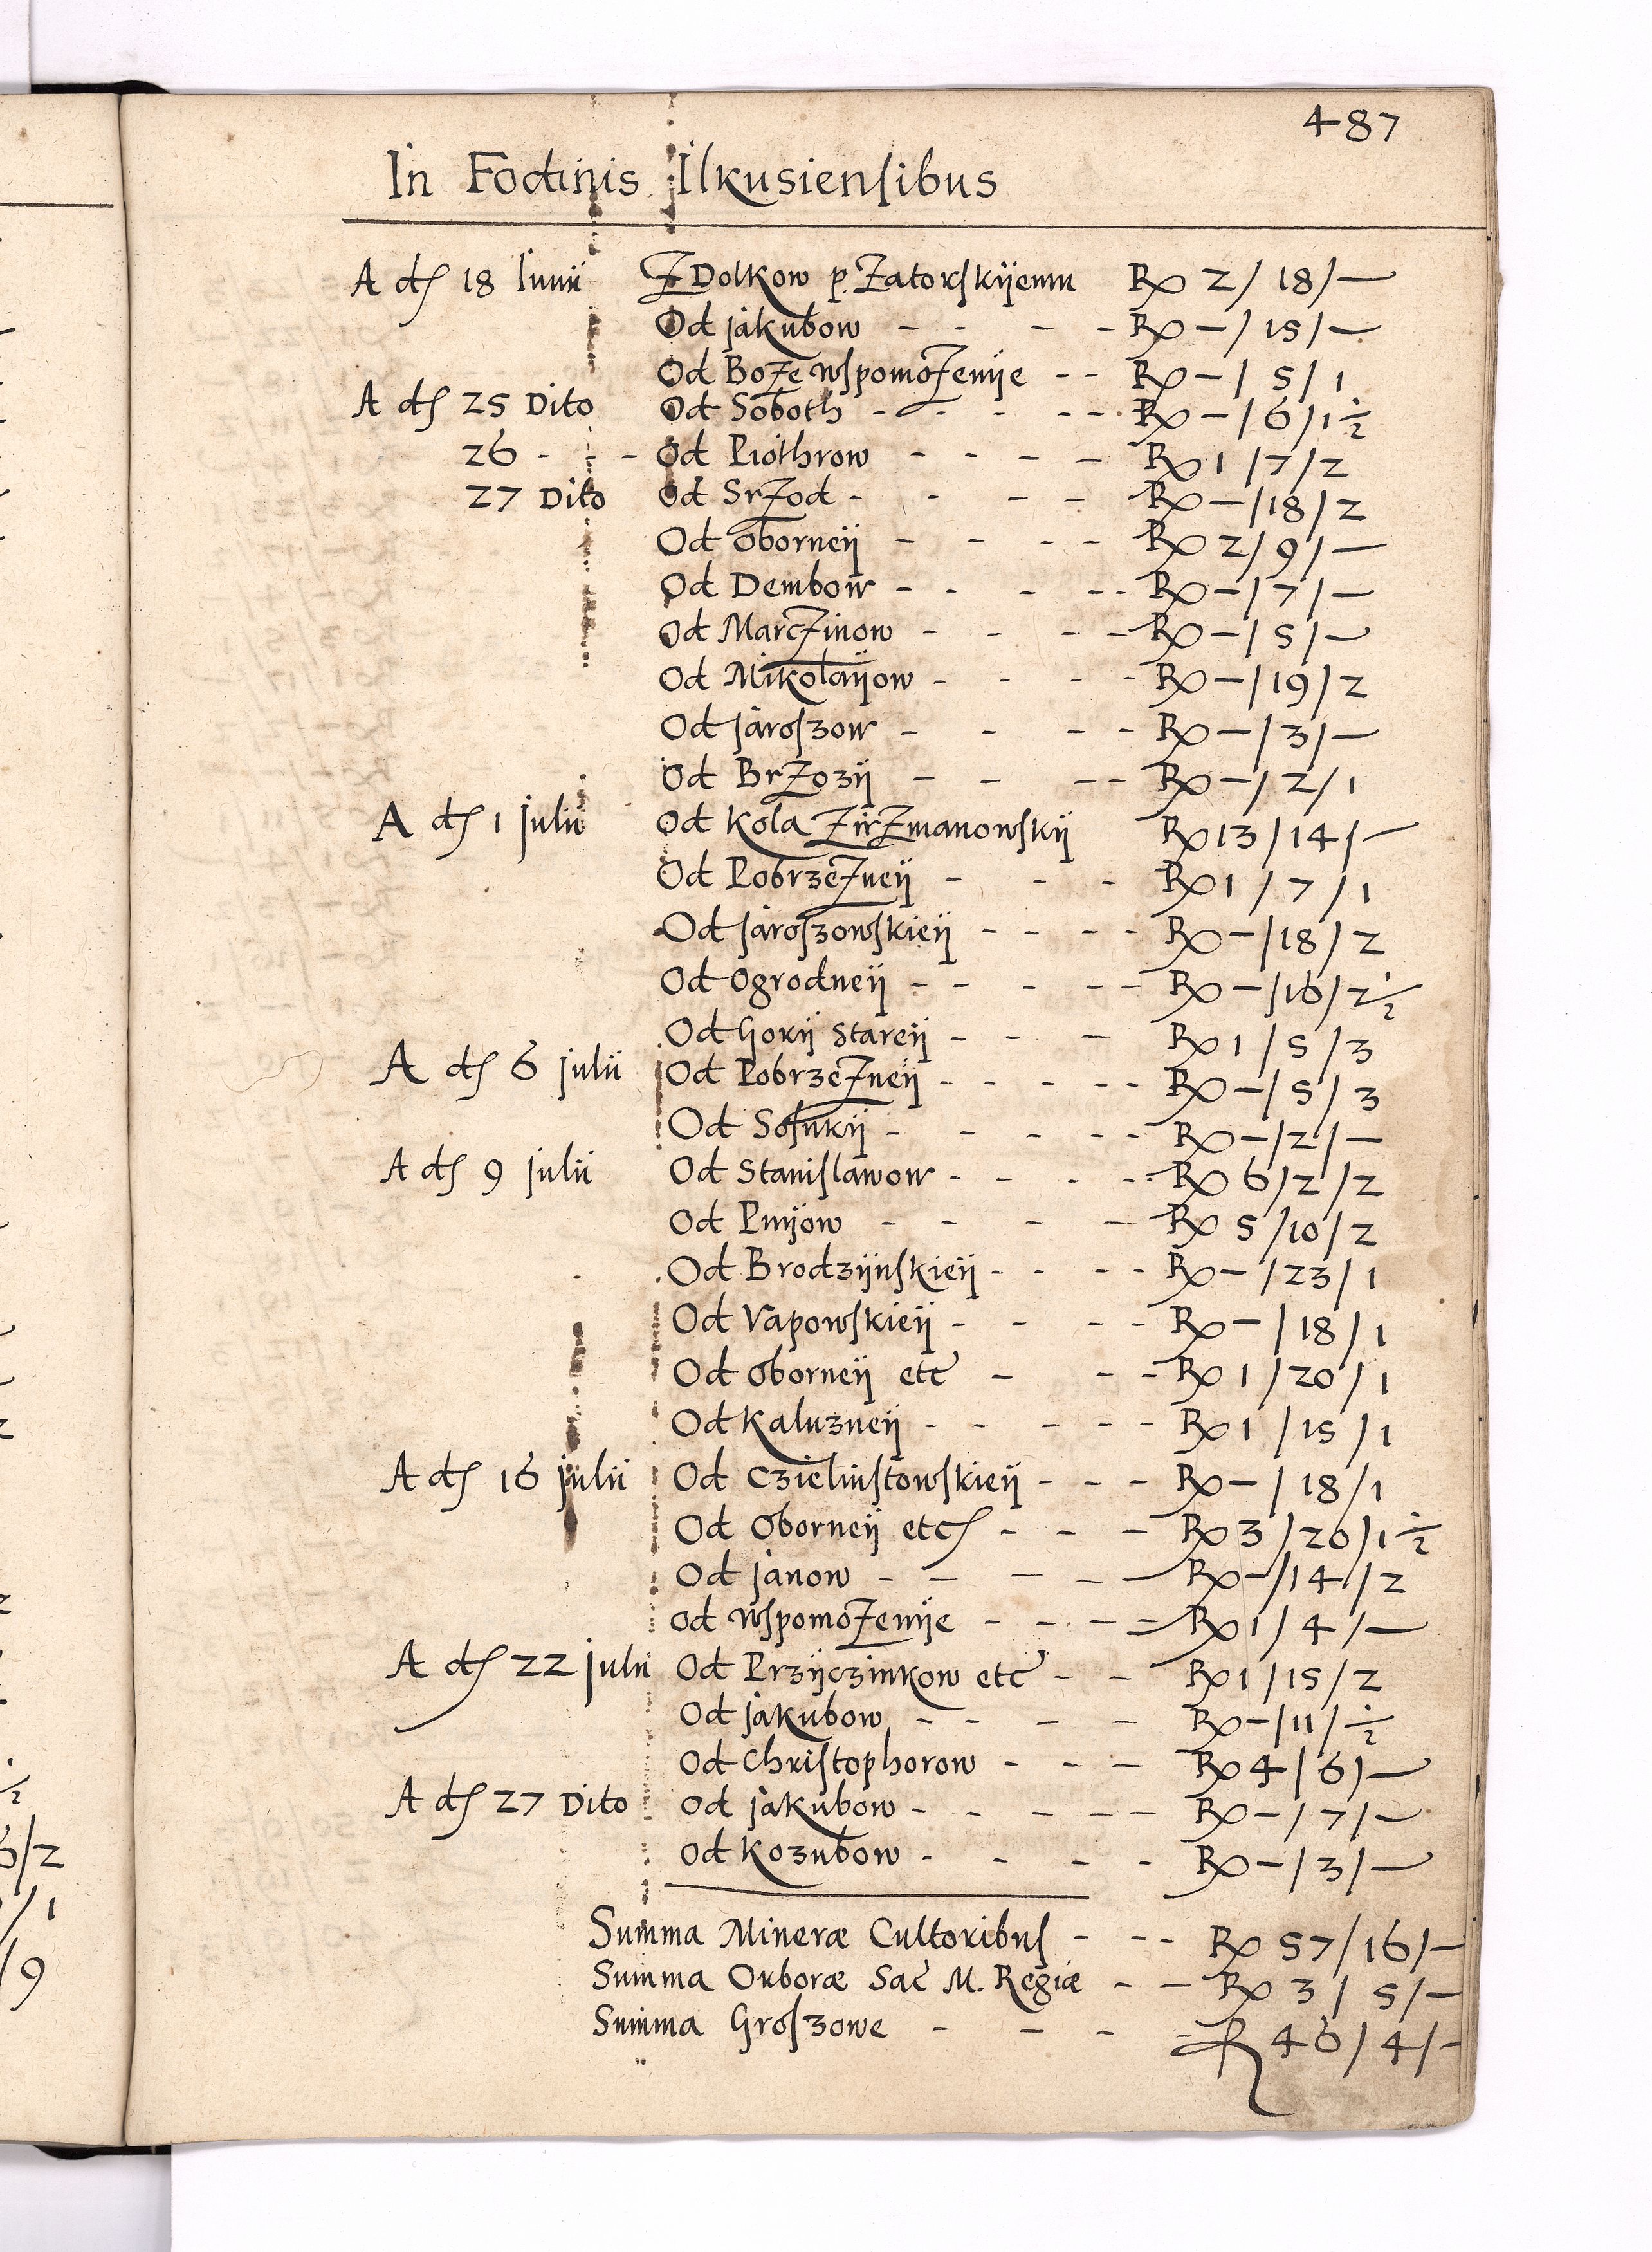 487
In Fodinis Ilkusiensibus
A di 18 Junii Z Dolkow p. Zatorskiiemu Rx 2/ 18/—
Od jakubow - - - - Rx —/ 15/—
Od Boże wspomożenije - - Rx —/ 5/ 1
A di 25 Dito Od Soboth - - - - - Rx —/6/1½
26 - - - Od Piothrow - - - - Rx 1/7/2
27 Dito Od Srzod - - - - Rx —/18/2
Od oborneij - - - - Rx 2/9/—
Od Dembow - - - - - Rx —/7/—
Od Marczinow - - - - Rx —/5/—
Od Mikolaijow - - - - Rx —/19/2
Od jaroszow - - - - Rx —/3/—
Od Brzozij - - - - Rx —/2/1
A di 1 julii Od Kola Zirzmanowskij Rx 13/14/—
Od Pobrzeżneij - - - Rx 1/7/1
Od jaroszowskieij - - - - Rx —/18/2
Od Ogrodneij - - - - - Rx —/16/2½
Od Gorij Stareij - - - Rx 1/5/3
A di 6 julii Od Pobrzeżneij - - - - - Rx —/5/3
Od Sosnkij - - - - - Rx —/2/—
A di 9 julii Od Stanislawow - - - - - Rx 6/2/2
Od Pnijow - - - - Rx 5/10/2
Od Brodzijnskieij - - - - Rx —/23/1
Od Vapowskieij - - - - Rx —/18/1
Od oborneij etc - - - Rx 1/20/1
Od Kaluzneij - - - - - Rx 1/15/1
A di 16 julii Od Czielinstowskieij - - - Rx —/18/1
Od Oborneij etc - - - Rx 3/20/1½
Od janow - - - - Rx —/14/2
od wspomożenije - - - = Rx 1/4/—
A di 22 julii Od Przijczinkow etc - - Rx 1/15/2
Od jakubow - - - - Rx —/11/½
Od Christophorow - - - Rx 4/6/—
A di 27 Dito Od jakubow - - - - - Rx —/7/—
Od Kozubow - - - - Rx —/3/—
Summa Mineræ Cultoribus - - - Rx 57/16/—
Summa Orboræ Sac M. Regiæ - - Rx 3/5/—
Summa Groszowe - - - = R 46/4/—